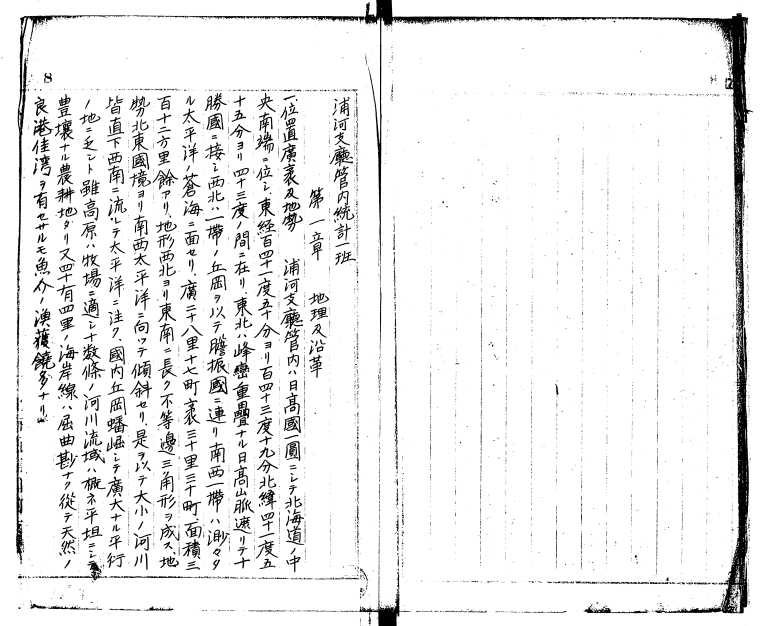 8
浦河支廳管内統計一班
第一章 地理及沿革
一、位置廣袤及地勢 浦河支廳管内ハ日高國一圓ニシテ北海道ノ中
央南端ニ位シ、東経百四十一度五十分ヨリ百四十三度十九分北緯四十一度五
十五分ヨリ四十三度ノ間ニ在リ、東北ハ峰巒重疊ナル日高山脈遮リテ十
勝國ニ接シ西北ハ一帶ノ丘岡ヲ以テ膽振國ニ連リ南西一帶ハ渺々タ
ル太平洋ノ蒼海ニ面セリ、廣二十八里十七町、袤三十里三十町、面積三
百十二方里餘アリ、地形西北ヨリ東南ニ長ク不等邊三角形ヲ成ス、地
勢北東國境ヨリ南西太平洋ニ向ッテ傾斜セリ、是ヲ以テ大小ノ河川
皆直下西南ニ流レテ太平洋ニ注ク、國内丘岡蟠崛シテ廣大ナル平行
ノ地ニ乏シト雖高原ハ牧場ニ適シ十数條ノ河川流域ハ概ネ平坦ニシテ
豊壤ナル農耕地タリ又四十有四里ノ海岸線ハ屈曲尠ナク從テ天然ノ
良港佳湾ヲ有セサルモ魚介ノ漁獲饒多ナリ